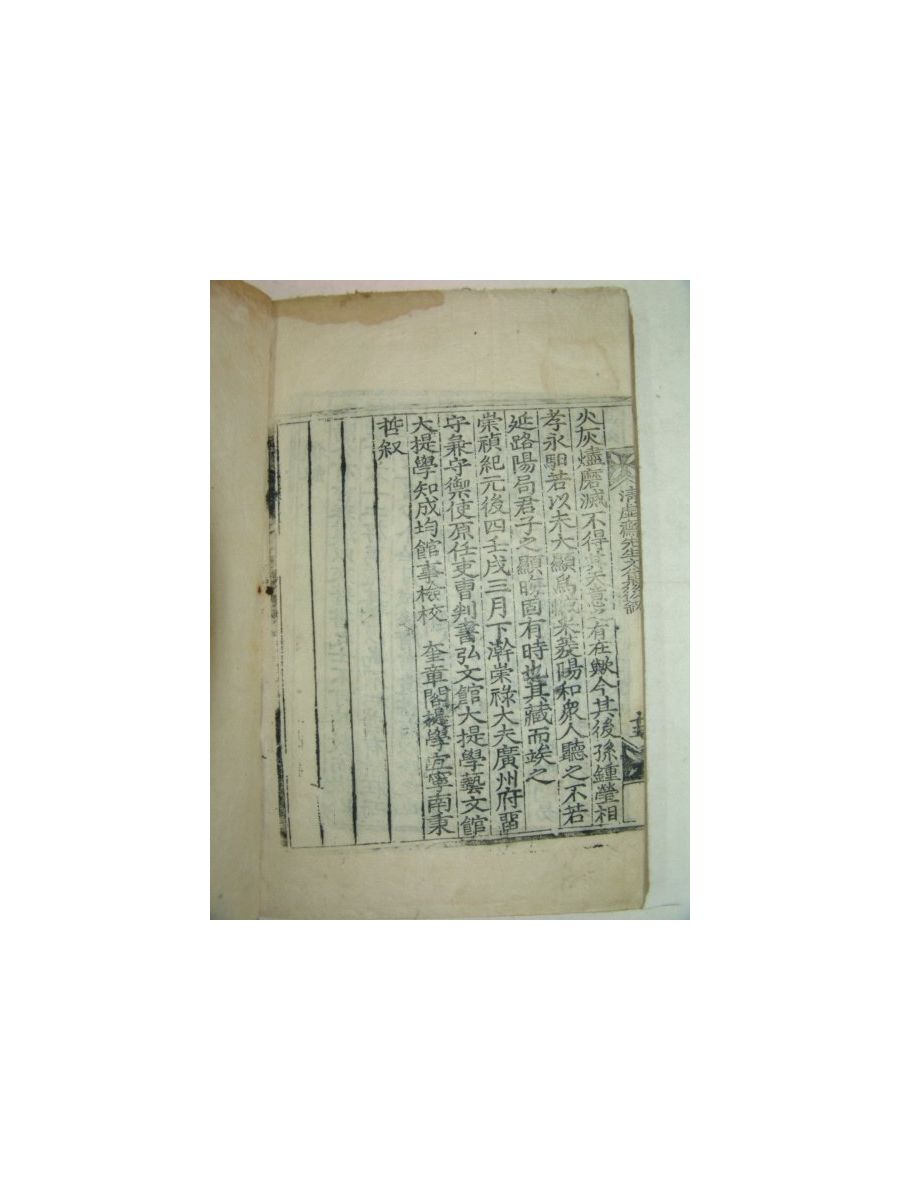 清虛齋先生文集後敘
火灰燼磨滅不得 天意 有在歟今其後孫鍾瑩相
孝永馹若以未大顯爲 余發陽和衆人聽之不若
延路陽局君子之顯晦固有時也其藏而竢之
崇禎紀元後四壬戌三月下澣崇祿大夫廣州府留
守兼守禦使原任吏曹判書弘文館大提學藝文館
大提學知成均館事檢校 奎章閣提學宜寧南秉
哲叙